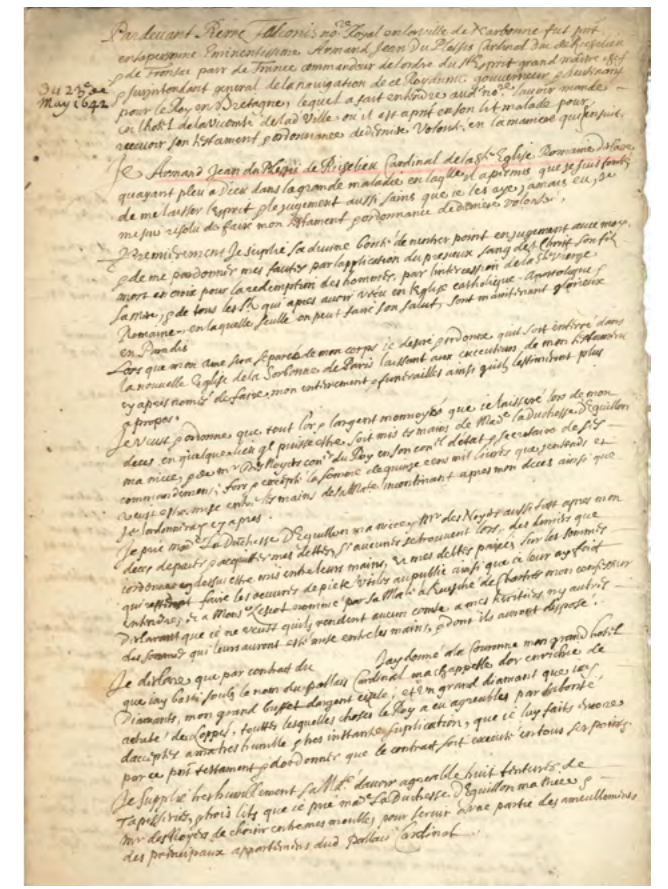 Pardevant Pierre Falconis no.re Royal en la ville de Narbonne fut pnt
en sa personne Eminentissime Armand Jean Du Plessis Cardinal duc de Richelieu
& de Fronsac pair de France commandeur de lordre du St Esprit grand maitre chef
& surintendant general de la navigation de ce Royaume gouverneur & lieutenant
Du 23e de
May 1642
pour le Roy en Bretagne, lequel a fait entendre aud no.re lavoir mandé
en lhotel de la Vicomté de lad Ville ou il est apnt en son lit malade pour
recevoir son testament & ordonnance de derniere Volonté, en la maniere qui sensuit.
Je Armand Jean du Plessis de Richelieu Cardinal de la Ste Eglise Romaine declare
quayant pleu a Dieu dans la grande maladie en laqlle il a permis que je suis tombé
de me laisser lesprit & le jugement aussi sains que ie les aye jamais eu, je
me suis resolu de faire mon testament & ordonnance de derniere volonté.
Premierement Je suplie sa divine bonté de nentrer point en jugement avec moy
& de me pardonner mes fautes par lapplication du precieux sang de J Christ son fils
mort en croix pour la redemption des hommes, par lintercession de la Ste Vierge
sa mere, & de tous les Sts qui apres avoir vécu en leglise catholique Apostolique &
Romaine, en laquelle seulle on peut faire son salut, sont maintenant glorieux
en Paradis
Lors que mon ame sera separée de mon corps ie desire & ordonne quil soit enterré dans
la nouvelle Eglise de la Sorbonne de Paris laissant aux executeurs de mon testament
cy apres només de faire mon enterrement & funerailles ainsi quils lestimeront plus
a propos.
Je veux & ordonne que tout lor & largent monnoyés que ie laisseré lors de mon
deces, en quelque lieu ql puisse estre, soit mis es mains de Made la Duchesse D'Eguillon
ma niece, & de mr Des Noyers con.er du Roy en son con.l d'état & secretaire de ses
commandemens, fors & excepté la somme de quinze cens mil livres que jentends et
veux estre mise entre les mains de sa Maté incontinant apres mon deces ainsi que
je lordonneray cy apres.
Je prie made La Duchesse D'Eguillon ma niece & Mr des Noyers aussi tost apres mon
deces de payer & acquitter mes dettes, si aucunes se trouvent lors, des deniers que
iordonne cy dessus estre mis entre leurs mains, & mes debtes paiées, sur les sommes
qui resteront faire les oeuvres de pieté utiles au public ainsi que ie leur ay fait
entendre, & a Monsr Lescot nommé par sa Maté a levesché de Chartres mon confesseur
Declarant que ie ne veux quils rendent aucun comte a mes heritiers ny autres
des sommes qui leurs auront esté mise entre les mains, & dont ils auront disposé.
Je declare que par contrat du Jay donné a la Couronne mon grand hotel
que iay basti soubs le nom du pallais Cardinal ma chappelle dor enrichie de
Diamants, mon grand buffet dargent cizelé, et un grand diamant que iay
acheté de Lopes, touttes lesquelles choses le Roy a eu agreables par sa bonté
daccepter a ma tres humble & tres instante suplication, que ie luy faits encore
par ce pnt testament & dordonner que le contrat soit executé en tous ses points.
Je supplie tres humblement sa Maté davoir agreable huit tentures de
Tapisseries, & trois lits que ie prie made La Duchesse D'Eguillon ma niece &
mr des Noyers de choisir entre mes meubles, pour servir a une partie des ameublemens
des principaux appartemens dud Pallais Cardinal